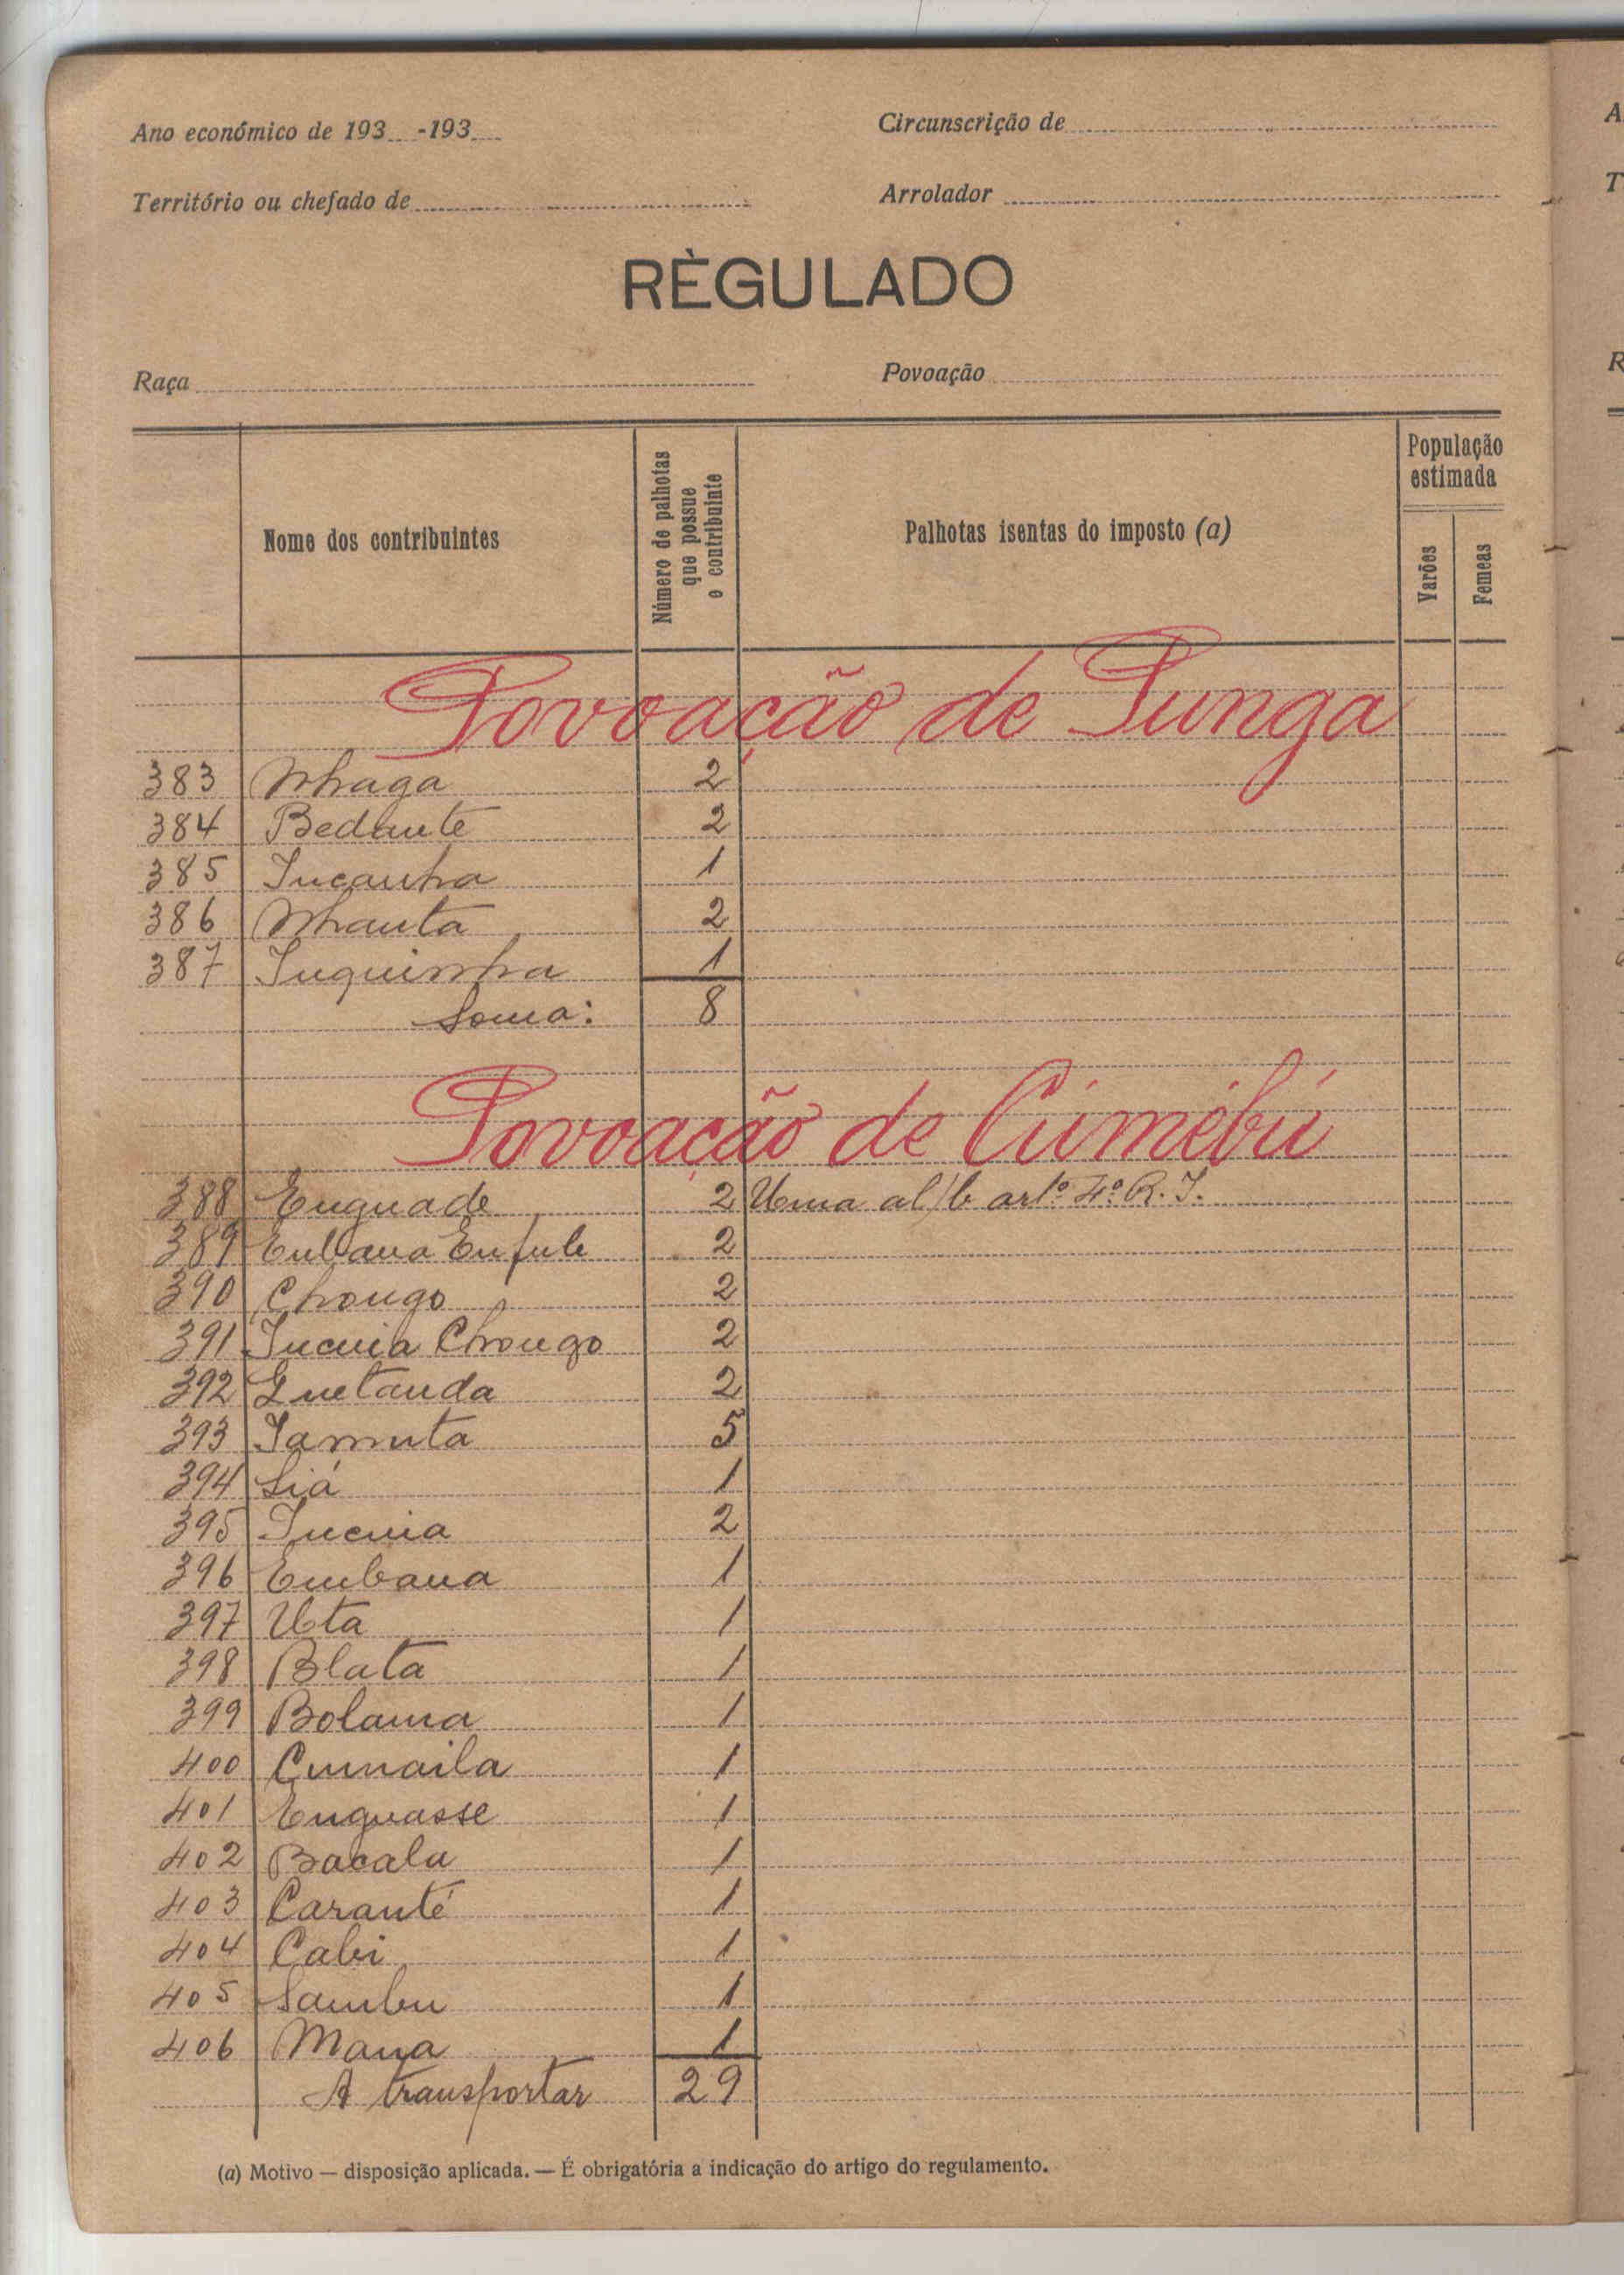 Ano económico de 193 -193
Circunscrição de
Território ou chefado de
Arrolador
RÈGULADO
Raça
Povoação
Nome dos contribuintes
Número de palhotas que possue o contribuinte
Palhotas isentas do imposto (a)
População estimada
Varões
Femeas
Povoação de Punga
383 Nhaga 2
384 Bedante 2
385 Incanha 1
386 Nhanta 2
387 Inquinha 1
Soma: 8
Povoação de Cúmébú
388 Enguade 2 Uma al/b artº 4º R. I.
389 Enbana Enfule 2
390 Chongo 2
391 Incuia Chongo 2
392 Guetanda 2
393 Iamuta 5
394 Siá 1
395 Incuia 2
396 Embana 1
397 Uta 1
398 Blata 1
399 Bolama 1
400 Cumaila 1
401 Enguasse 1
402 Bacalu 1
403 Caranté 1
404 Cabi 1
405 Sambu 1
406 Mana 1
A transportar 29
(a) Motivo — disposição aplicada. — É obrigatória a indicação do artigo do regulamento.